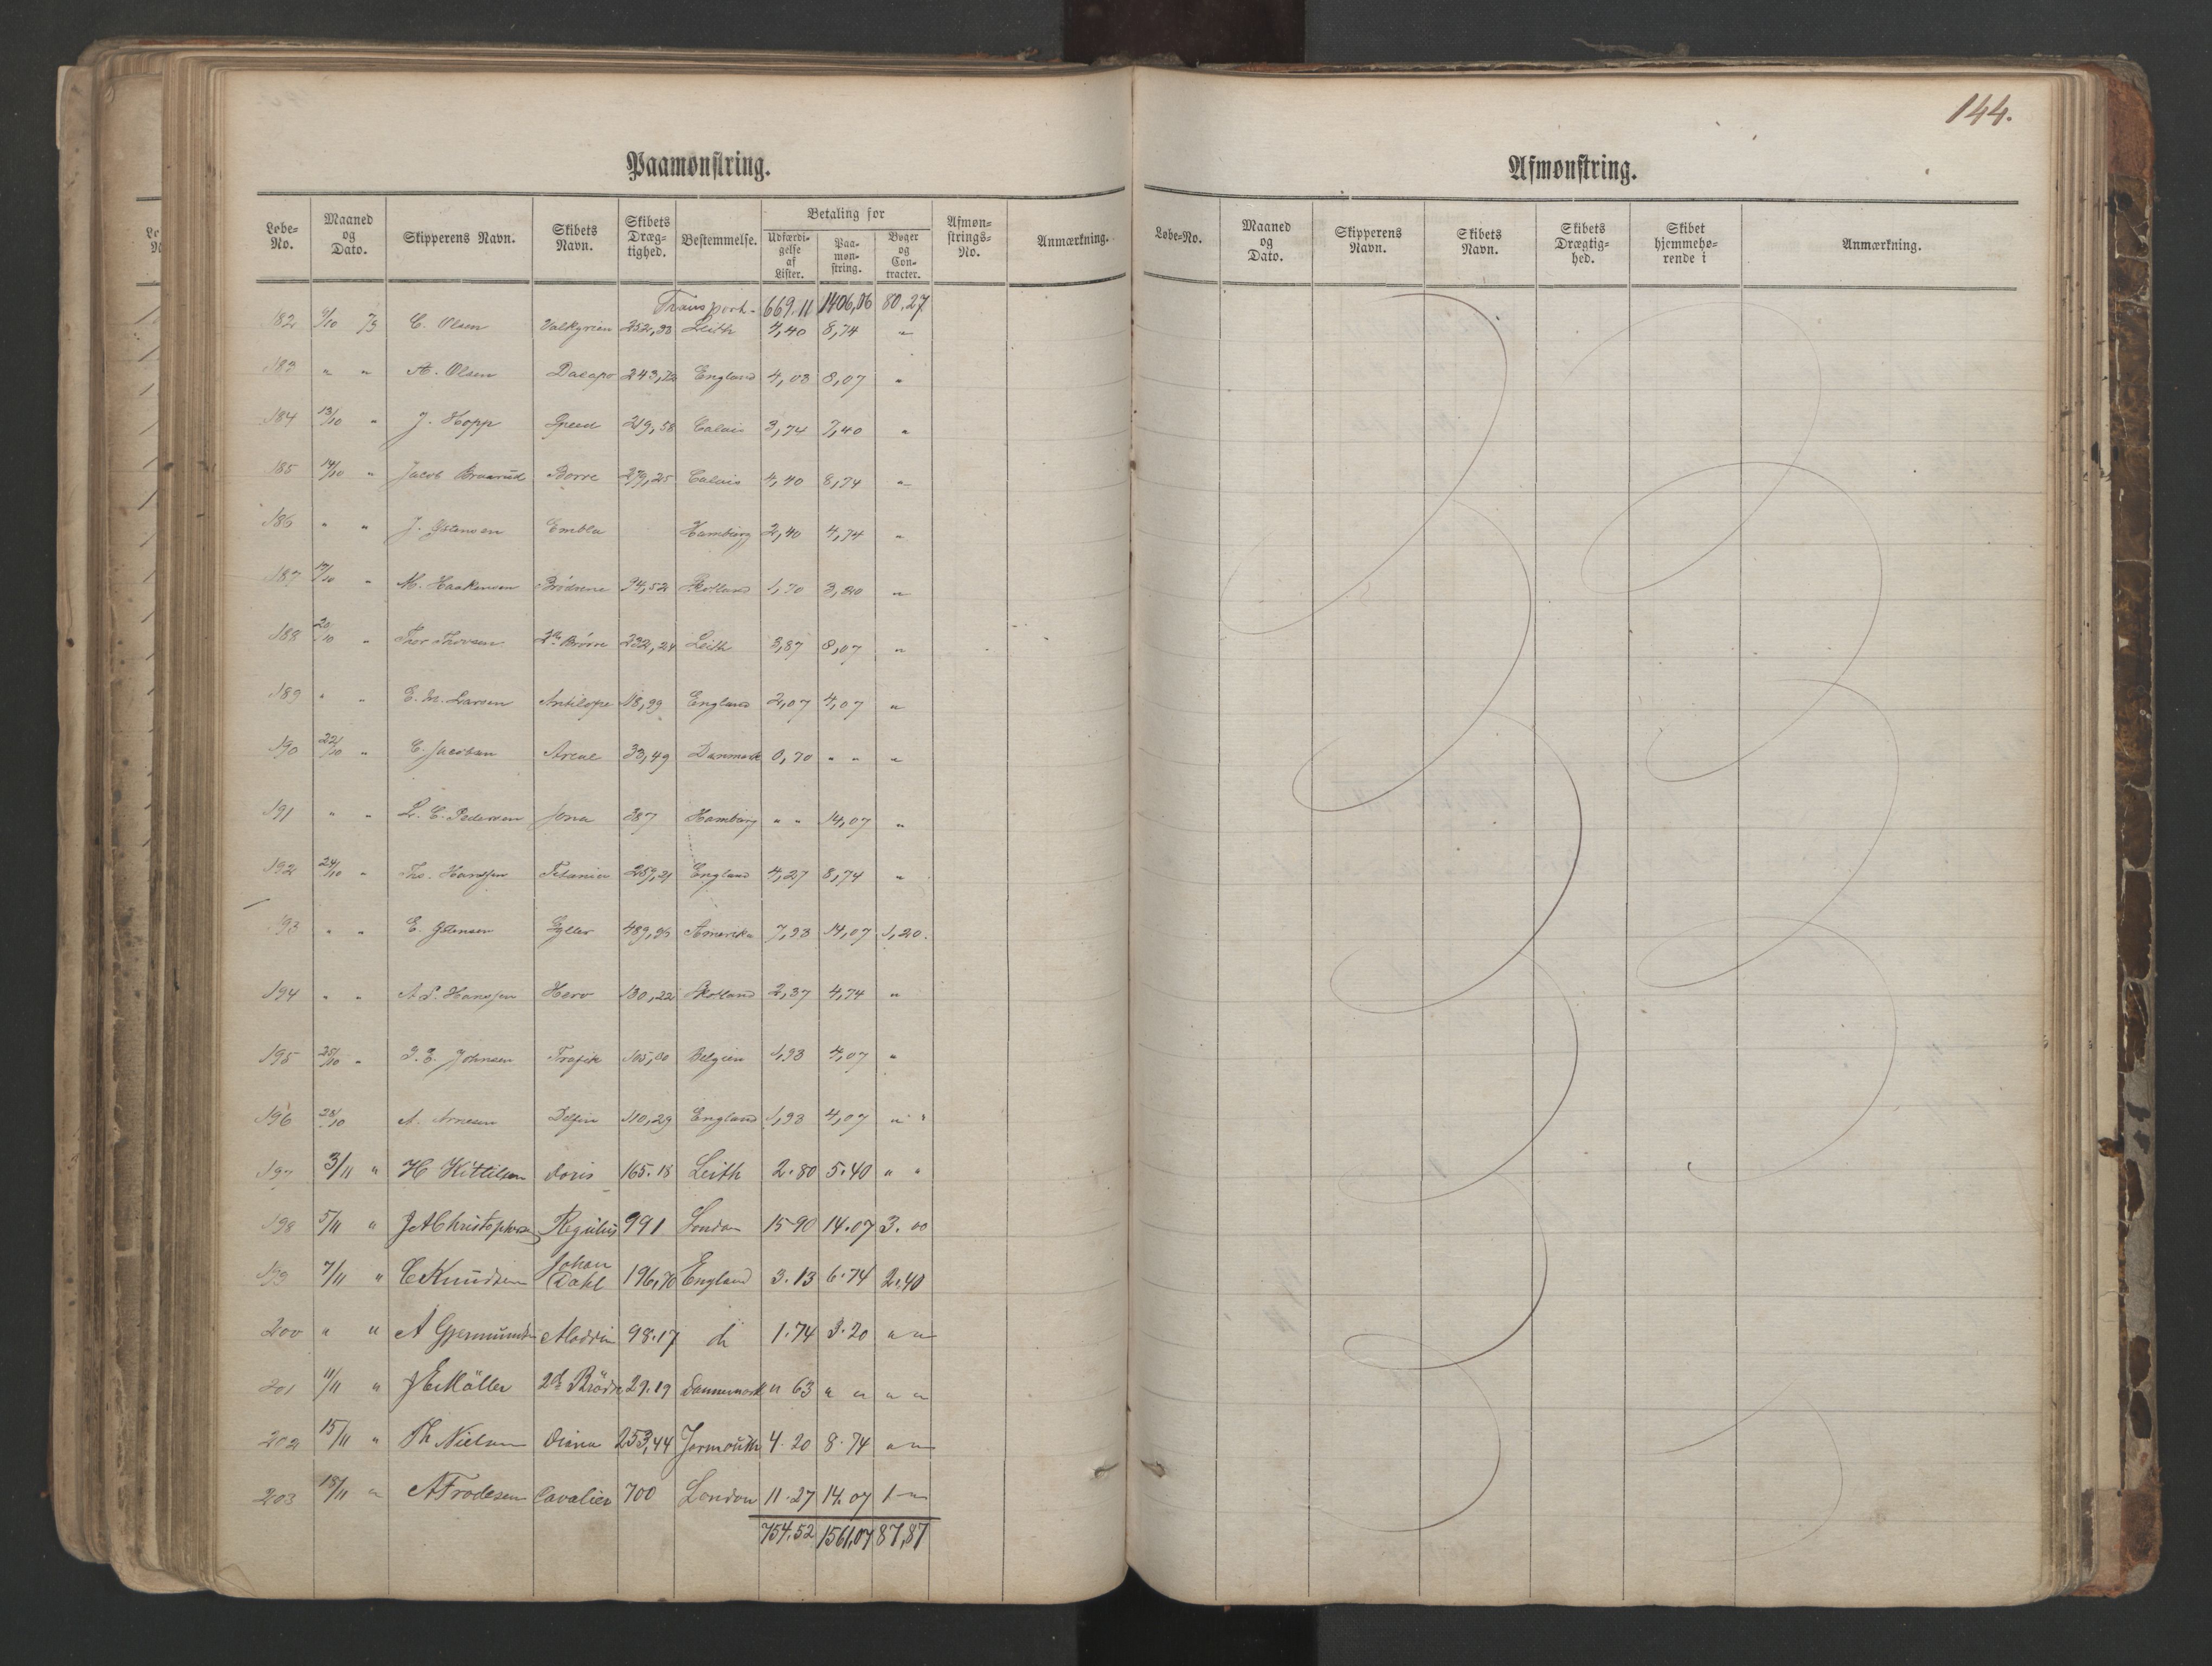 144.
Paamønstring.
Løbe-No. Maaned og Dato. Skipperens Navn. Skibets Navn. Skibets Dræg-tighed. Bestemmelse. Betaling for Udfærdi-gelse af Lister. Paa-møn-string. Bøger og Con-tracter. Afmøn-strings-No. Anmærkning.
Transport- 669.11 1406,06 80.27
182 9/10 73 C. Olsen Valkyrien 252,33 Leith 4,40 8,74 "
183 " " A. Olsen Dacapo 243,72 England 4,03 8,07 "
184 13/10 " J. Hopp Speed 219,58 Calais 3,74 7,40 "
185 14/10 " Jacob Braarud Borre 279,25 Calais 4,40 8,74 "
186 " " J. Gstensen Embla Hamburg 2,40 4,74 "
187 17/10 " M. Haakensen Brödrene 94,52 Skotland 1,70 3,20 "
188 20/10 " Thor Thorsen 2de Brödre 232,24 Leith 3,87 8,07 "
189 " " E. M. Larsen Antilope 118,99 England 2,07 4,07 "
190 22/10 " C. Jacobsen Arene 33,49 Danmark 0,70 " " "
191 " " L. C. Pedersen Jona 387 Hamburg " " 14,07 "
192 24/10 " Ths. Hansen Titania 259,21 England 4,27 8,74 "
193 " " E. Gstensen Eyller 489,96 Amerika 7,93 14,07 1,20.
194 " " A. P. Hansen Hero 130,22 Skotland 2,37 4,74 "
195 25/10 " J. E. Johnsen Trafik 105,80 Belgien 1,93 4,07 "
196 28/10 A. Arnesen Delfin 110,29 England 1,93 4,07 " "
197 3/11 " H Kittilsen Doris 165.18 Leith 2.80 5.40 " "
198 5/11 " J A Christophersen Regulus 991 London 15-90 14.07 3.00
199 7/11 " C Knudsen Johan Dahl 196,70 England 3.13 6.74 2.40
200 " " A Gjermundsen Aladdin 98.17 do 1.74 3.20 " "
201 11/11 " J E Møller 2de Brödre 29.19 Dannemark " 63 " " " "
202 15/11 " Th Nielsen Diana 253,44 Jarmouth 4.20 8.74 " "
203 18/11 " A Frodesen Cavalier 700 London 11.27 14.07 1 "
754.52 1561,07 87,87
Afmønstring.
Løbe-No. Maaned og Dato. Skipperens Navn. Skibets Navn. Skibets Drægtig-hed. Skibet hjemmehø-rende i Anmærkning.